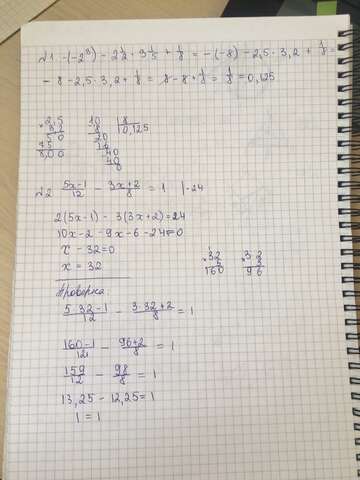 №1 -(-2³) - 2 1/2 · 3 1/5 + 1/8 = -(-8) - 2,5 · 3,2 + 1/8 =
- 8 - 2,5 · 3,2 + 1/8 = 8 - 8 + 1/8 = 1/8 = 0,125
× 2,5
3,2
50
75
8,00
10 | 8
8 | 0,125
20
16
40
40
0
№2 (5x-1)/12 - (3x+2)/8 = 1 | ·24
2(5x-1) - 3(3x+2) = 24
10x - 2 - 9x - 6 - 24 = 0
x - 32 = 0
x = 32
× 32
5
160
× 32
3
96
Проверка:
(5·32-1)/12 - (3·32+2)/8 = 1
(160-1)/12 - (96+2)/8 = 1
159/12 - 98/8 = 1
13,25 - 12,25 = 1
1 = 1